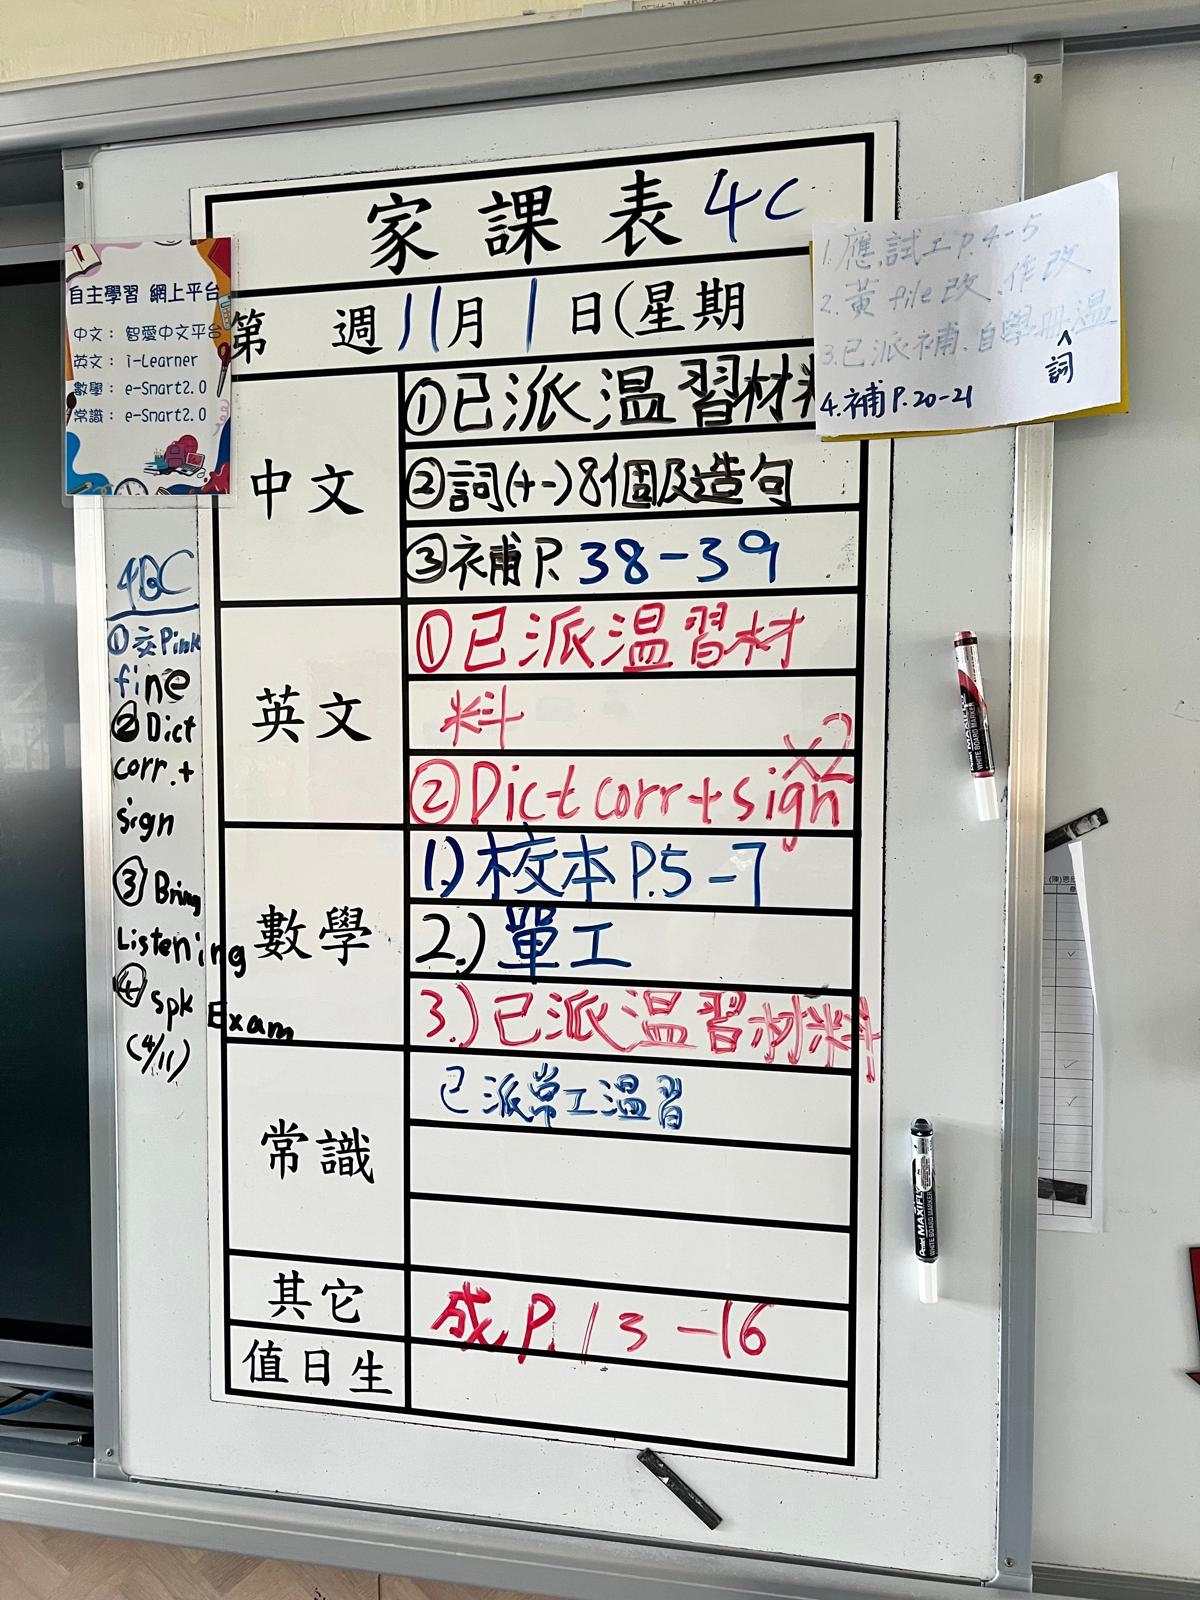 家課表 4C
第 週 11月 1日(星期
中文
①已派溫習材料
②詞(十一)8個及造句
③補P. 38-39
英文
①已派溫習材
料
②Dict corr+sign x2
數學
1.) 校本P.5-7
2.) 單工
3.) 已派溫習材料
常識
已派常工溫習
其它
成P.13-16
值日生
自主學習 網上平台
中文： 智愛中文平台
英文： i-Learner
數學： e-Smart2.0
常識： e-Smart2.0
4BC
①交Pink
fine
②Dict
corr.+
sign
③Bring
Listening
④spk Exam
(4/11)
1.應試工P.4-5
2.黃file改、作改
3.已派補、自學冊、詞溫
4.補P.20-21
MAXIFLO
WHITE BOARD MARKER
Pentel MAXIFLO
WHITE BOARD MARKER